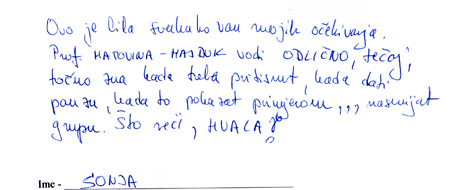 Ovo je bila svakako van mojih očekivanja.
Prof. MATOVINA - HAJDUK vodi ODLIČNO, tečaj,
točno zna kada treba pritisnut, kada dati
pauzu, kada to pokazat primjerom ,,, nasmijat
grupu. Što reći, HVALA
Ime - SONJA